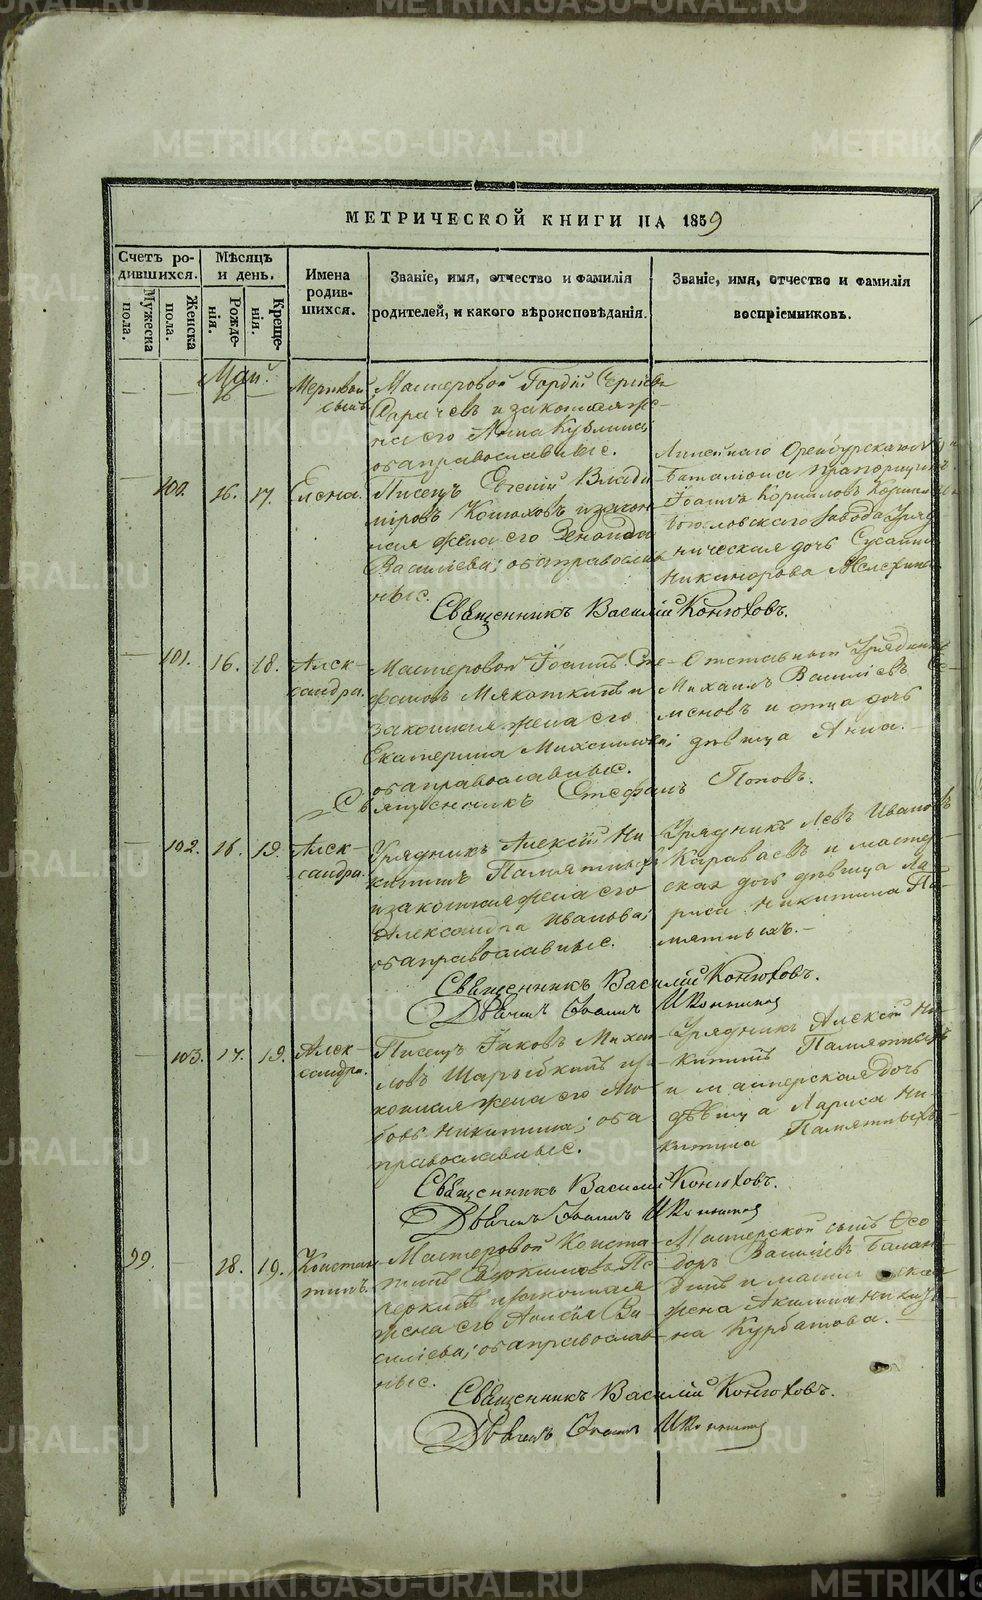 МЕТРИЧЕСКОЙ КНИГИ НА 1859
Счетъ ро-
дившихся.
Мужеска
пола.
Женска
пола.
Мѣсяцъ
и день.
Рожде-
нія.
Креще-
нія.
Имена
родив-
шихся.
Званіе, имя, отчество и фамилія
родителей, и какого вѣроисповѣданія.
Званіе, имя, отчество и фамилія
воспріемниковъ.
Май.
Мертвый
сынъ
Мастеровой Гордій Сергіевъ
и законная же-
на его Анна
оба православные.
100. 16. 17. Елена.
Писецъ Евгеній Влади
міровъ Конюховъ и закон
ная жена его Зеноида
Васильева; оба православ
ные.
Линейнаго Оренбургскаго
Баталіона Прапорщикъ
Іоаннъ Корниловъ
Богословскаго Завода Уряд
ническая дочь Сусанна
Никанорова
Священникъ Василій Конюховъ.
101. 16. 18. Алек-
сандра.
Мастеровой Іоаннъ Сте-
фановъ Мякоткинъ и
законная жена его
Екатерина
оба православные.
Отставный Урядникъ
Михаилъ Васильевъ Се-
меновъ и отца дочь
дѣвица Анна.
Священникъ Стефанъ Поповъ.
102. 16. 19. Алек-
сандра.
Урядникъ Алексій Ни
китинъ Памятныхъ
и законная жена его
Александра Иванова;
оба православные.
Урядникъ Левъ Ивановъ
Караваевъ и мастер-
ская дочь дѣвица Ла
риса Никитина Па-
мятныхъ.
Священникъ Василій Конюховъ.
Дьячекъ Іоаннъ Иконниковъ
103. 17. 19. Алек-
сандра.
Писецъ Іаковъ Михаи
ловъ Шарыбкинъ
конная жена его Лю
бовь Никитина; оба
православные.
Урядникъ Алексій Ни
китинъ Памятныхъ
и мастерская дочь
дѣвица Лариса Ни
китина Памятныхъ
Священникъ Василій Конюховъ.
Дьячекъ Іоаннъ Иконниковъ
99. 18. 19. Констан
тинъ.
Мастеровой Конста
тинъ Пе
черкинъ и законная
жена его Ва
сильева; оба православ
ные.
Мастерской сынъ Ѳео
доръ Васильевъ Балан
динъ и мастерская
жена Акилина Никити
на Курбатова.
Священникъ Василій Конюховъ.
Дьячекъ Іоаннъ Иконниковъ
METRIKI.GASO-URAL.RU